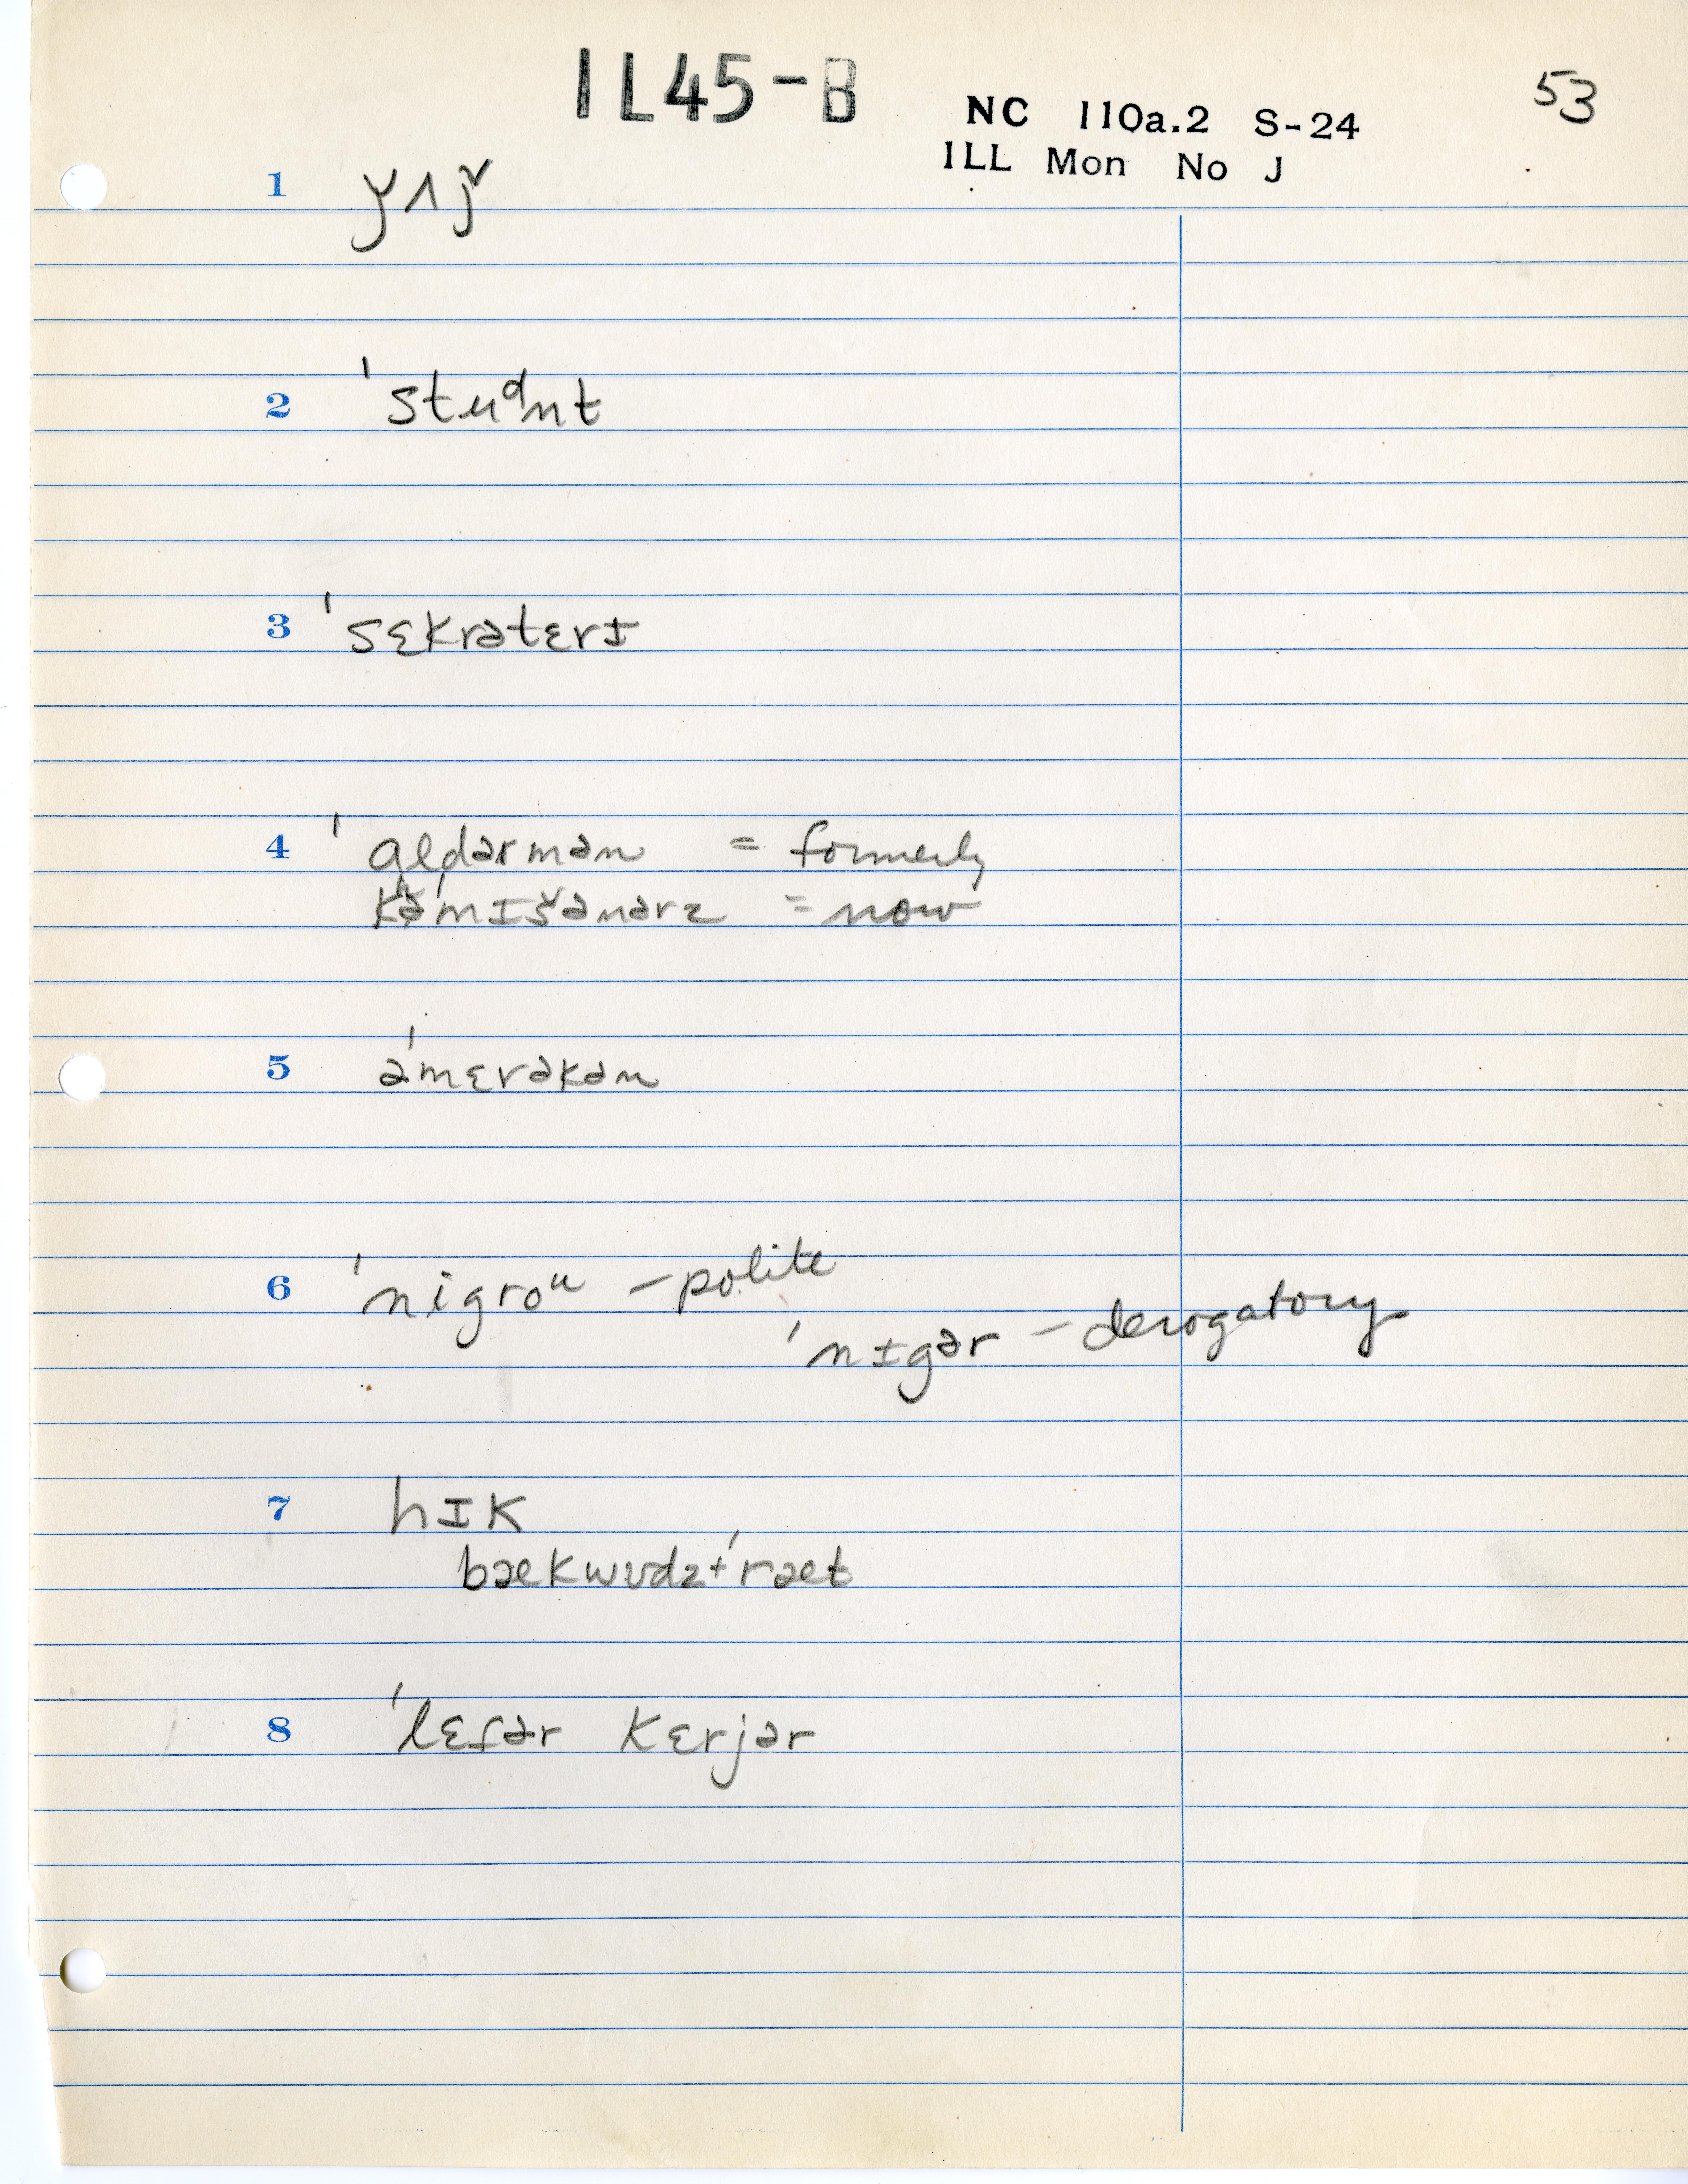 IL45-B
53
NC 110a.2 S-24
ILL Mon No J
1 ǰʌǰ
2 ˈstuᵈnt
3 ˈsɛkrətɛrɪ
4 ˈɑldərmən = formerly
kəˈmɪšənərz = now
5 əˈmɛrəkən
6 ˈnigroᵘ – polite
ˈnɪgər – derogatory
7 hɪk
bækwʊdzˈræt
8 ˈlɛfər kɛrjər